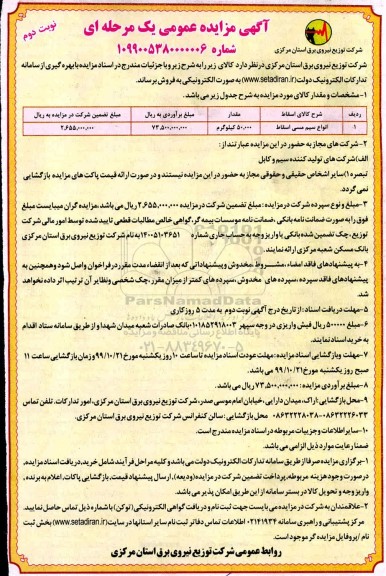 آگهی مزایده عمومی یک مرحله ای
نوبت دوم
شماره ۱۰۹۹۰۰۵۳۸۰۰۰۰۰۰۶
شرکت توزیع نیروی برق استان مرکزی
شرکت توزیع نیروی برق استان مرکزی در نظر دارد کالای زیر را به شرح زیر و با جزئیات مندرج در اسناد مزایده با بهره گیری از سامانه
تدارکات الکترونیک دولت (www.setadiran.ir) به صورت الکترونیکی به فروش برساند.
۱-مشخصات و مقدار کالای مورد مزایده به شرح جدول زیر می باشد.
ردیف شرح کالای اسقاط مقدار مبلغ برآوردی به ریال مبلغ تضمین شرکت در مزایده به ریال
۱ انواع سیم مسی اسقاط ۵۰،۰۰۰ کیلوگرم ۷۳،۵۰۰،۰۰۰،۰۰۰ ۲،۶۵۵،۰۰۰،۰۰۰
۲-شرکت های مجاز به حضور در این مزایده عبارتند از:
الف) شرکت های تولید کننده سیم و کابل
تبصره۱) سایر اشخاص حقیقی و حقوقی مجاز به حضور در این مزایده نیستند و در صورت ارائه قیمت پاکت های مزایده بازگشایی
نمی گردد.
۳-مبلغ و نوع سپرده شرکت در مزایده: مبلغ تضمین شرکت در مزایده ۲،۶۵۵،۰۰۰،۰۰۰ ریال می باشد، مزایده گران میبایست مبلغ
فوق را به صورت ضمانت نامه بانکی، ضمانت نامه موسسات بیمه گر، گواهی خالص مطالبات قطعی تایید شده توسط امور مالی شرکت
توزیع، چک تضمین شده بانکی یا واریز وجه به حساب جاری شماره ۱۴۰۰۵۱۰۳۶۵۱ به نام شرکت توزیع نیروی برق استان مرکزی
بانک مسکن شعبه مرکزی ارائه نمایند.
۴-به پیشنهادهای فاقد امضاء، مشروط، مخدوش و پیشنهاداتی که بعد از انقضاء مدت مقرر در فراخوان واصل شود و همچنین به
پیشنهادهای فاقد سپرده، سپرده های مخدوش، سپرده های کمتر از میزان مقرر، چک شخصی و نظایر آن ترتیب اثر داده نخواهد
شد.
۵-مهلت دریافت اسناد: از تاریخ درج آگهی نوبت دوم به مدت ۵ روز کاری
۶-مبلغ ۵۰۰۰۰۰ ریال فیش واریزی در وجه سپهر ۰۱۰۱۸۵۴۹۱۸۰۰۳ بانک صادرات شعبه میدان شهدا و از طریق سامانه ستاد اقدام
به خرید اسناد نمایند.
۷-مهلت و بازگشایی اسناد مزایده: مهلت عودت اسناد مزایده تا ساعت ۱۰ روز یکشنبه مورخ ۹۹/۱۰/۲۱ و زمان بازگشایی ساعت ۱۱
صبح روز یکشنبه مورخ ۹۹/۱۰/۲۱ می باشد.
۸-مبلغ برآوردی مزایده: ۷۳،۵۰۰،۰۰۰،۰۰۰ ریال می باشد.
۹-محل بازگشایی: اراک، میدان دارایی، خیابان امام موسی صدر، شرکت توزیع نیروی برق استان مرکزی، امور تدارکات. تلفن تماس
۰۸۶۳۲۲۲۶۰۳۳-۰۸۶۳۲۲۲۸۰۳۸ محل بازگشایی: سالن کنفرانس شرکت توزیع نیروی برق استان مرکزی.
۱۰-سایر اطلاعات و جزییات مربوطه در اسناد مزایده مندرج است.
ضمنا رعایت موارد ذیل الزامی می باشد.
۱-برگزاری مزایده صرفا از طریق سامانه تدارکات الکترونیک دولت می باشد و کلیه مراحل فرآیند شامل خرید، دریافت اسناد مزایده،
درصورت وجود هزینه مربوطه، پرداخت تضمین شرکت در مزایده (ودیعه)، ارسال پیشنهاد قیمت، بازگشایی پاکات، اعلام به برنده،
واریز وجه و تحویل کالا در بستر سامانه از این طریق امکان پذیر می باشد.
۲-علاقمندان به شرکت در مزایده می بایست جهت ثبت نام و دریافت گواهی الکترونیکی (توکن) با شماره ذیل تماس حاصل نمایید.
مرکز پشتیبانی و راهبری سامانه ۰۲۱۴۱۹۳۴ اطلاعات تماس دفاتر ثبت نام سایر استانها در سایت (www.setadiran.ir) بخش ثبت
نام/پروفایل مزایده گر موجود است.
روابط عمومی شرکت توزیع نیروی برق استان مرکزی
ParsNamadData
۰۲۱-۸۸۳۴۹۶۷۰-۵